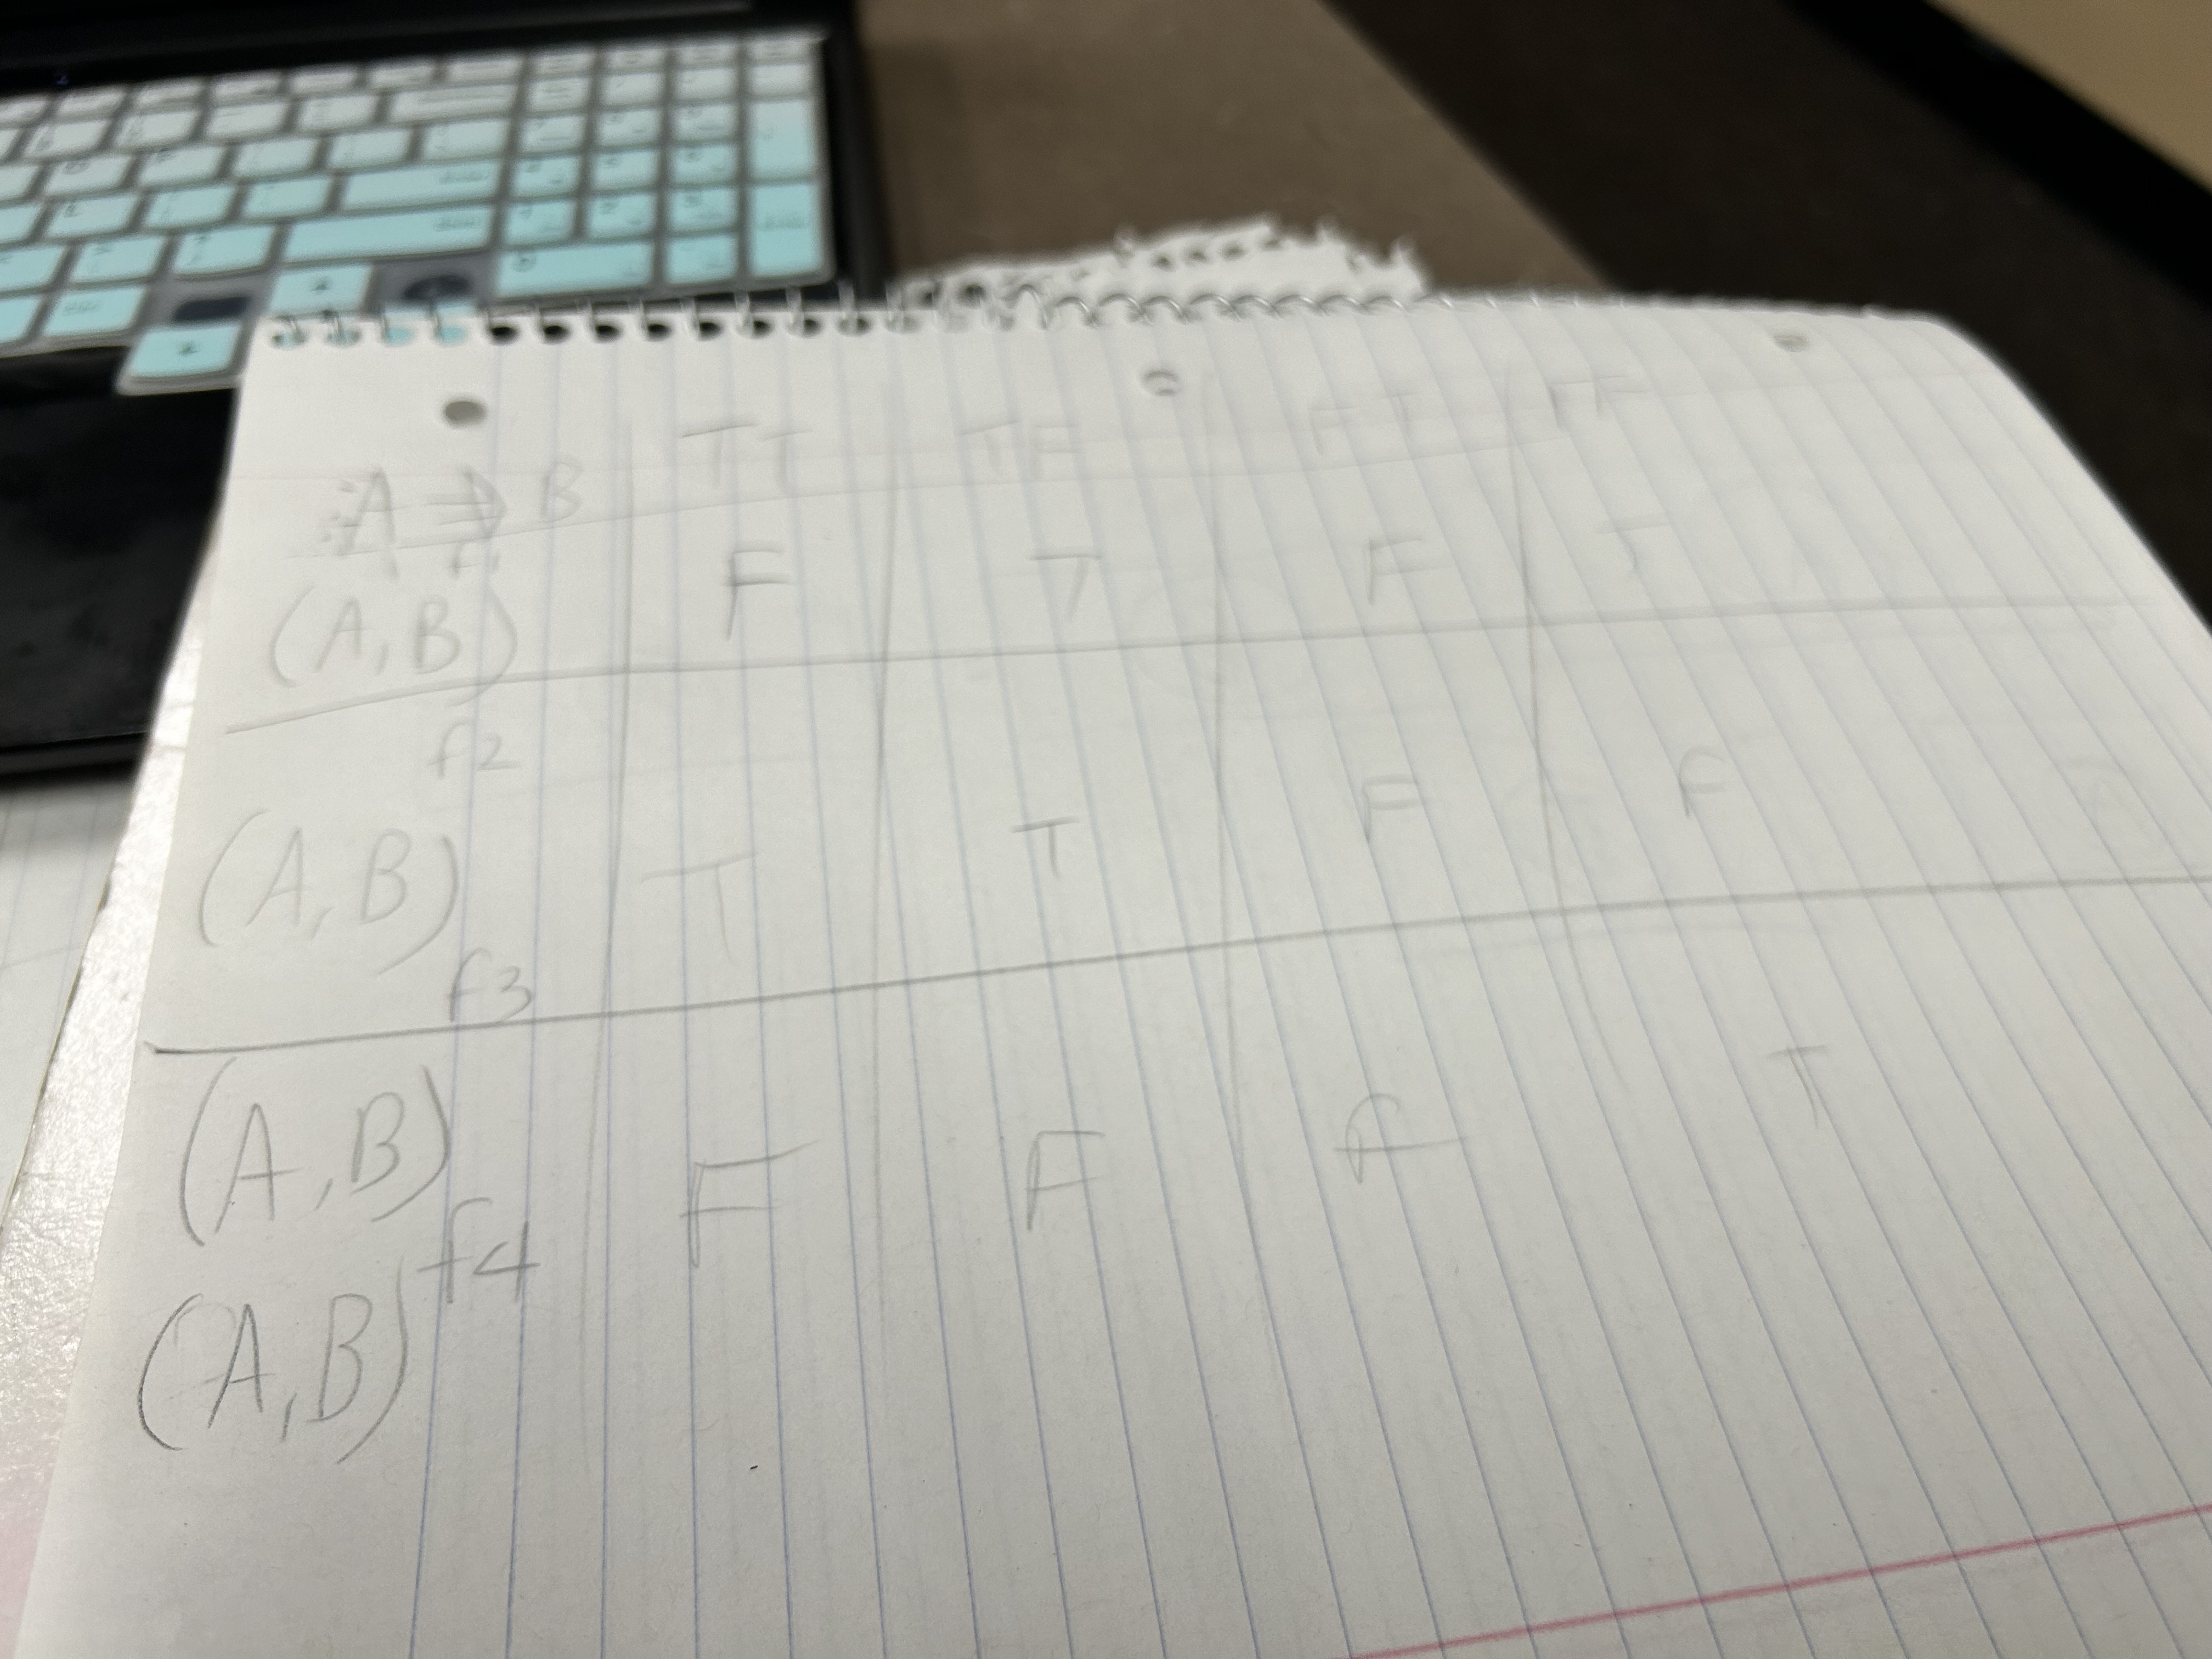 TT TF FT FF
A ⇒ B
f1
(A,B) F T F T
f2
(A,B) T T F F
f3
(A,B) F F F T
f4
(A,B)